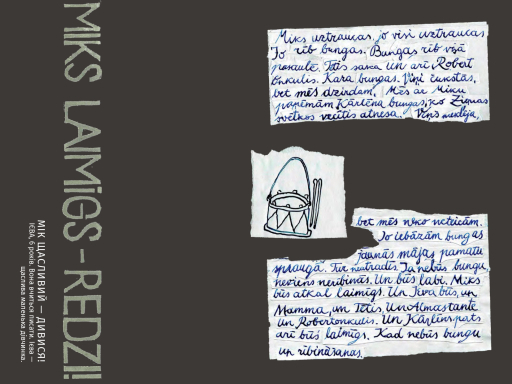 MIKS LAIMĪGS – REDZI!
МІК ЩАСЛИВИЙ — ДИВИСЯ!
ІЄВА, 6 років. Вона вчиться писати. Ієва —
щаслива маленька дівчинка.
Miks uztraucas, jo visi uztraucas.
Jo rīb bungas. Bungas rīb visā
pasaulē. Tētis saka un arī Robert
onkulis. Kara bungas. Viņi čukstās,
bet mēs dzirdam. Mēs ar Miku
paņēmām Kārlēna bungas, ko Ziemas
svētkos vecītis atnesa. Viņš meklēja,
bet mēs neko neteicām.
Jo iebāzām bungas
jaunās mājas pamatu
spraugā. Tur neatradīs. Ja nebūs bungu,
neviens neribinās. Un būs labi. Miks
būs atkal laimīgs. Un Ieva būs, un
Mamma, un Tētis. Un Almastante
un Robertonkulis. Un Kārlēnpats
arī būs laimīgs. Kad nebūs bungu
un ribināšanas.